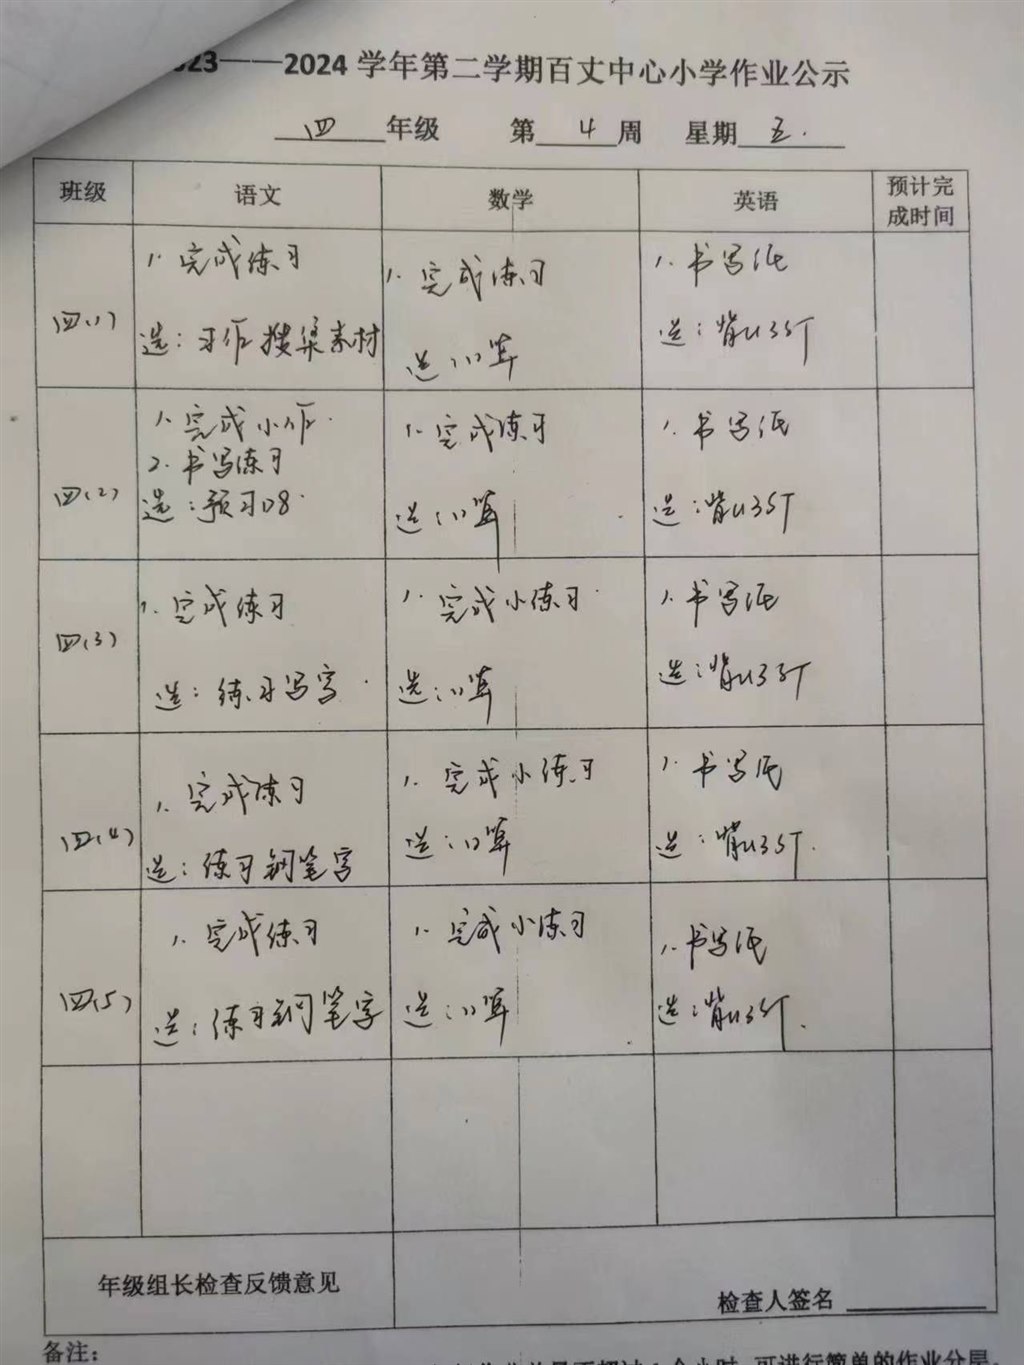 023——2024 学年第二学期百丈中心小学作业公示
四 年级 第 4 周 星期 五.
班级 语文 数学 英语 预计完成时间
四(1)
1. 完成练习
选：习作搜集素材
1. 完成练习
选：口算
1. 书写纸
选：背U3
四(2)
1. 完成小作.
2. 书写练习
选：预习08.
1. 完成练习
选：口算
1. 书写纸
选：背U3
四(3)
1. 完成练习
选：练习写字.
1. 完成小练习.
选：口算
1. 书写纸
选：背U3
四(4)
1. 完成练习
选：练习钢笔字
1. 完成小练习
选：口算
1. 书写纸
选：背U3
四(5)
1. 完成练习
选：练习钢笔字
1. 完成小练习
选：口算
1. 书写纸
选：背U3
年级组长检查反馈意见
检查人签名
备注：
可进行简单的作业分层。